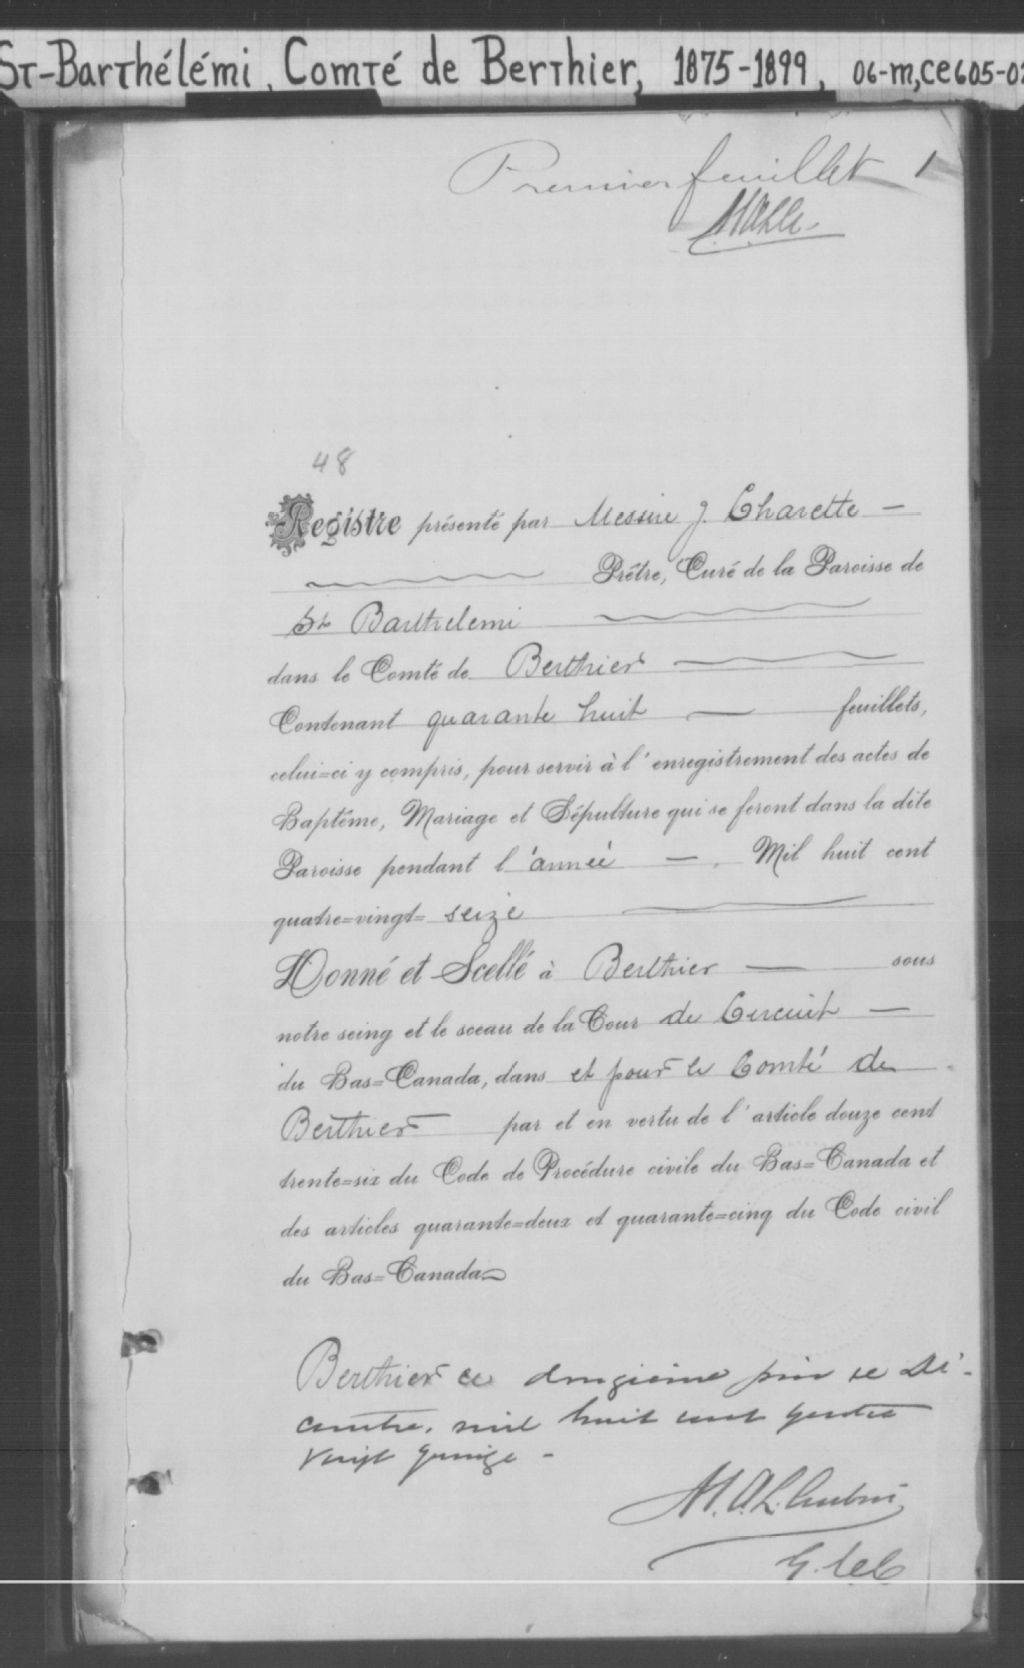 St-Barthélémi, Comté de Berthier, 1875-1899, 06-m,ce605-0
Premier feuillet 1
48
Registre présenté par Messire J. Charette —
Prêtre, Curé de la Paroisse de
St Barthelemi
dans le Comté de Berthier
Contenant quarante huit — feuillets,
celui=ci y compris, pour servir à l'enregistrement des actes de
Baptême, Mariage et Sépulture qui se feront dans la dite
Paroisse pendant l'année — . Mil huit cent
quatre=vingt= seize
Donné et Scellé à Berthier — sous
notre seing et le sceau de la Cour de Circuit —
du Bas=Canada, dans et pour le Comté de
Berthier par et en vertu de l'article douze cent
trente=six du Code de Procédure civile du Bas=Canada et
des articles quarante=deux et quarante=cinq du Code civil
du Bas=Canada
Berthier ce douzieme jour de Dé-
cembre, mil huit cent quatre
vingt quinze -